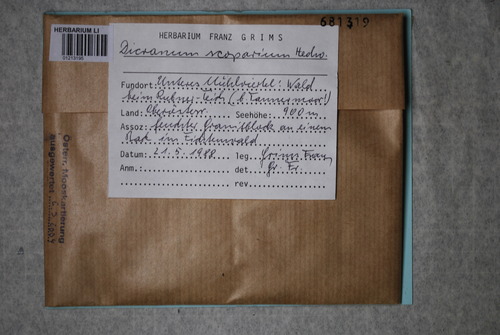 681319
HERBARIUM LI
HERBARIUM FRANZ GRIMS
Dicranum scoparium Hedw.
Fundort: Unteres Mühlviertel: Wald
beim
Land: Oberösterr. Seehöhe: 900 m
Assoz: feuchter Granitblock an einem
Bach im Fichtenwald
Datum: 21.5.1988 leg. Grims Franz
Anm.: det. Gr. Fr.
rev.
Österr. Mooskartierung
ausgewertet